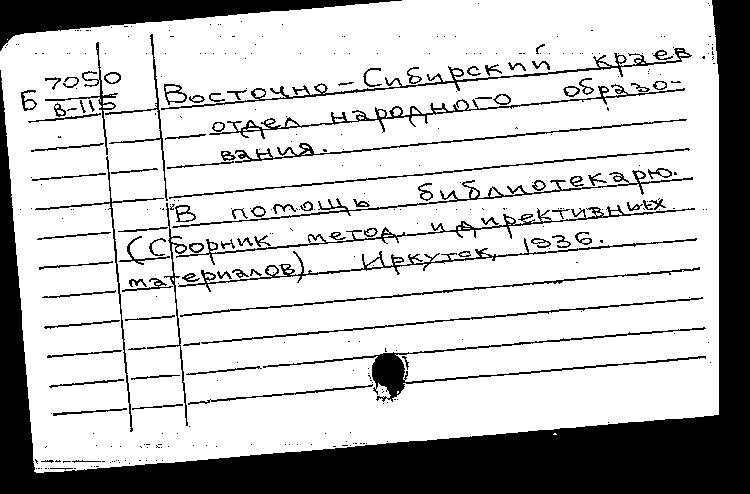 Б 7050
В-115
Восточно-Сибирский краев.
отдел народного образо-
вания.
В помощь библиотекарю.
(Сборник метод. и директивных
материалов). Иркутск, 1936.